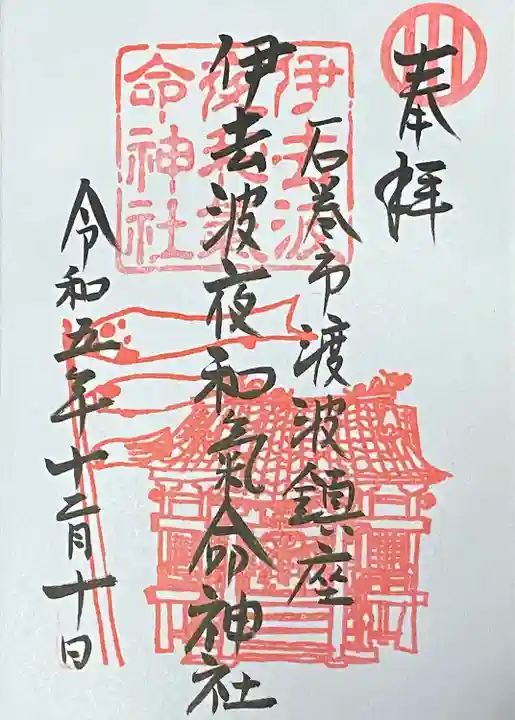 奉拝
石巻市渡波鎮座
伊去波夜和氣命神社
令和五年十二月十日
伊去波
夜和氣
命神社